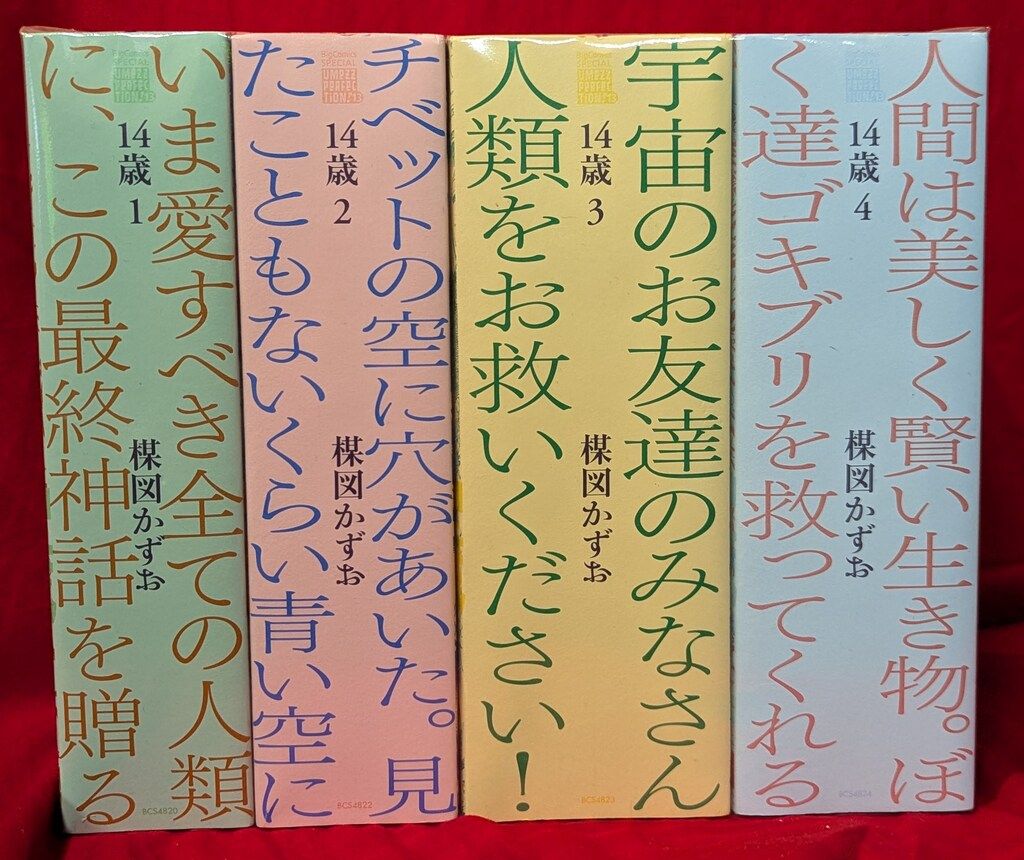 いま愛すべき全ての人類
に、この最終神話を贈る
BigComics
SPECIAL
UMEZZ
PERFEC
TION! 13
14歳
1
楳図かずお
BCS4820
チベットの空に穴があいた。見
たこともないくらい青い空に
BigComics
SPECIAL
UMEZZ
PERFEC
TION! 13
14歳
2
楳図かずお
BCS4822
宇宙のお友達のみなさん
人類をお救いください!
BigComics
SPECIAL
UMEZZ
PERFEC
TION! 13
14歳
3
楳図かずお
BCS4823
人間は美しく賢い生き物。ぼ
く達ゴキブリを救ってくれる
BigComics
SPECIAL
UMEZZ
PERFEC
TION! 13
14歳
4
楳図かずお
BCS4824